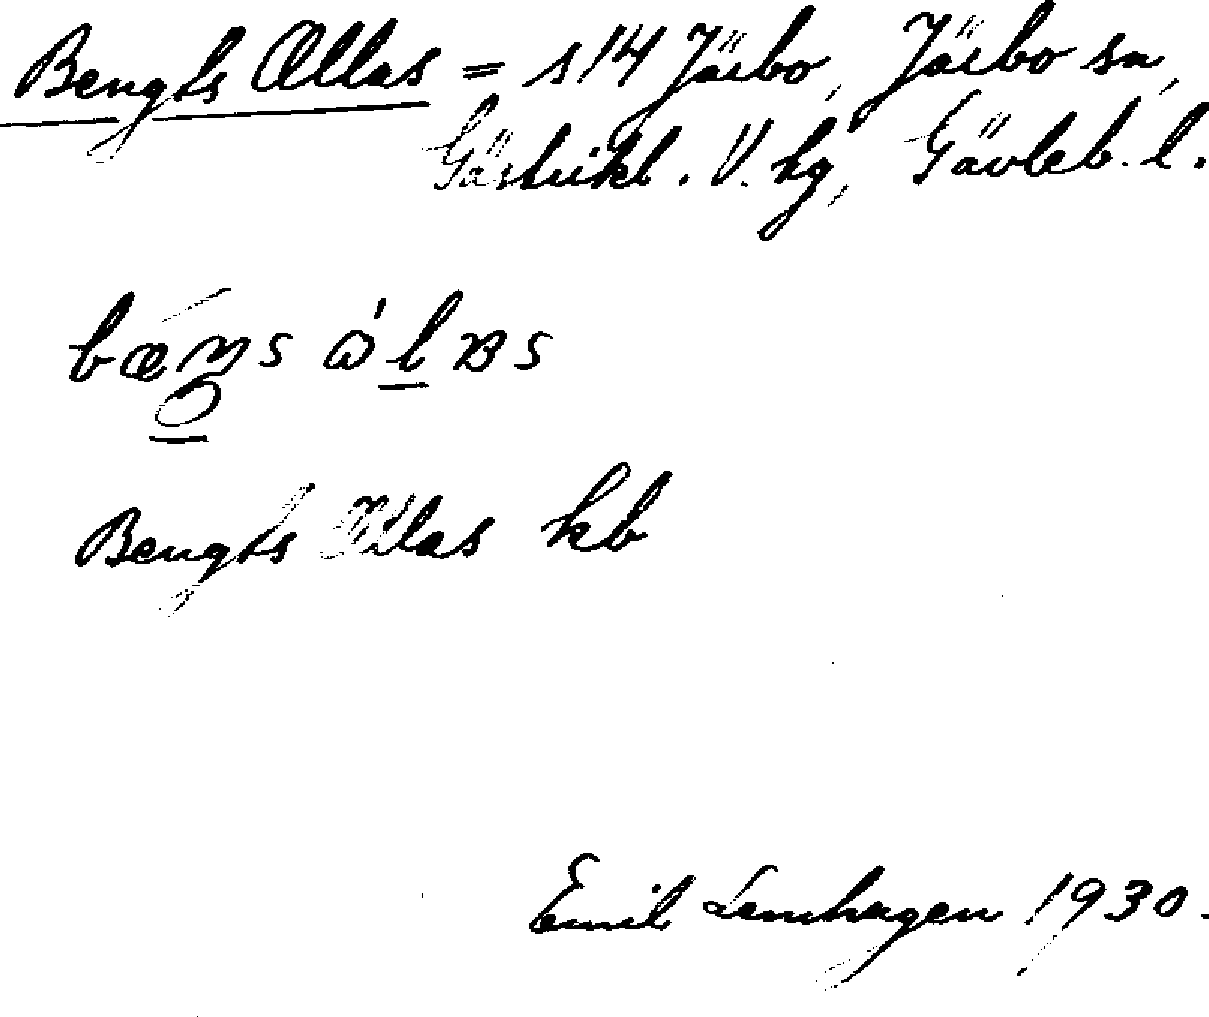 Bengts Ollas = s 14 Järbo, Järbo sn,
Gästrikl. V. hg, Gävleb. l.
Bengts Ollas kb
Emil Lenhagen 1930.